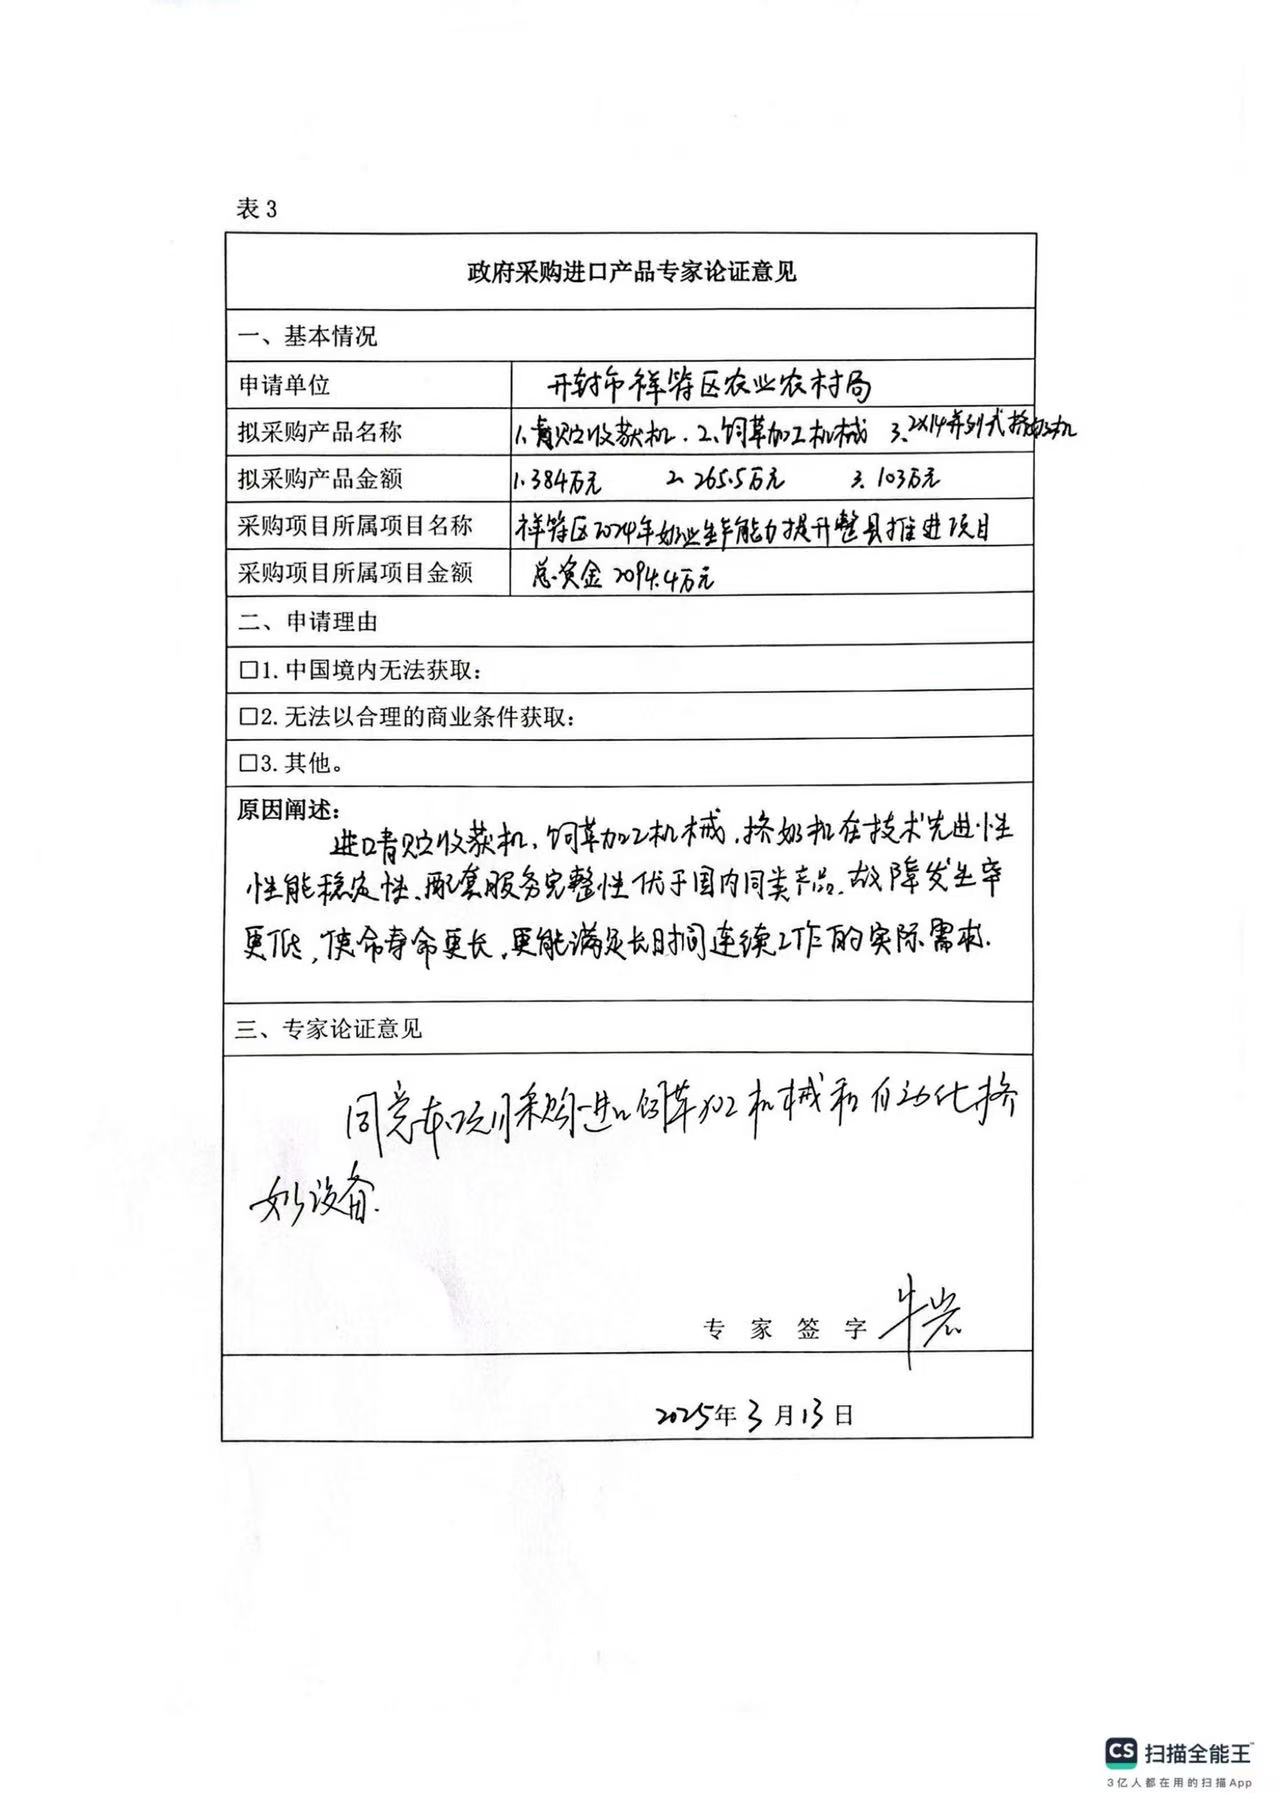 表3
政府采购进口产品专家论证意见
一、基本情况
申请单位 开封市祥符区农业农村局
拟采购产品名称 1.青贮收获机. 2.饲草加工机械 3.2X14并列式挤奶机
拟采购产品金额 1.384万元 2.265.5万元 3.103万元
采购项目所属项目名称 祥符区2024年奶业生产能力提升整县推进项目
采购项目所属项目金额 总资金2094.4万元
二、申请理由
□1.中国境内无法获取:
□2.无法以合理的商业条件获取:
□3.其他。
原因阐述:
进口青贮收获机,饲草加工机械,挤奶机在技术先进性
性能稳定性、配套服务完整性优于国内同类产品.故障发生率
更低,使命寿命更长,更能满足长时间连续工作的实际需求.
三、专家论证意见
同意本项目采购进口饲草加工机械和自动化挤
奶设备.
专家签字 牛岩
2025年3月13日
CS 扫描全能王™
3亿人都在用的扫描App